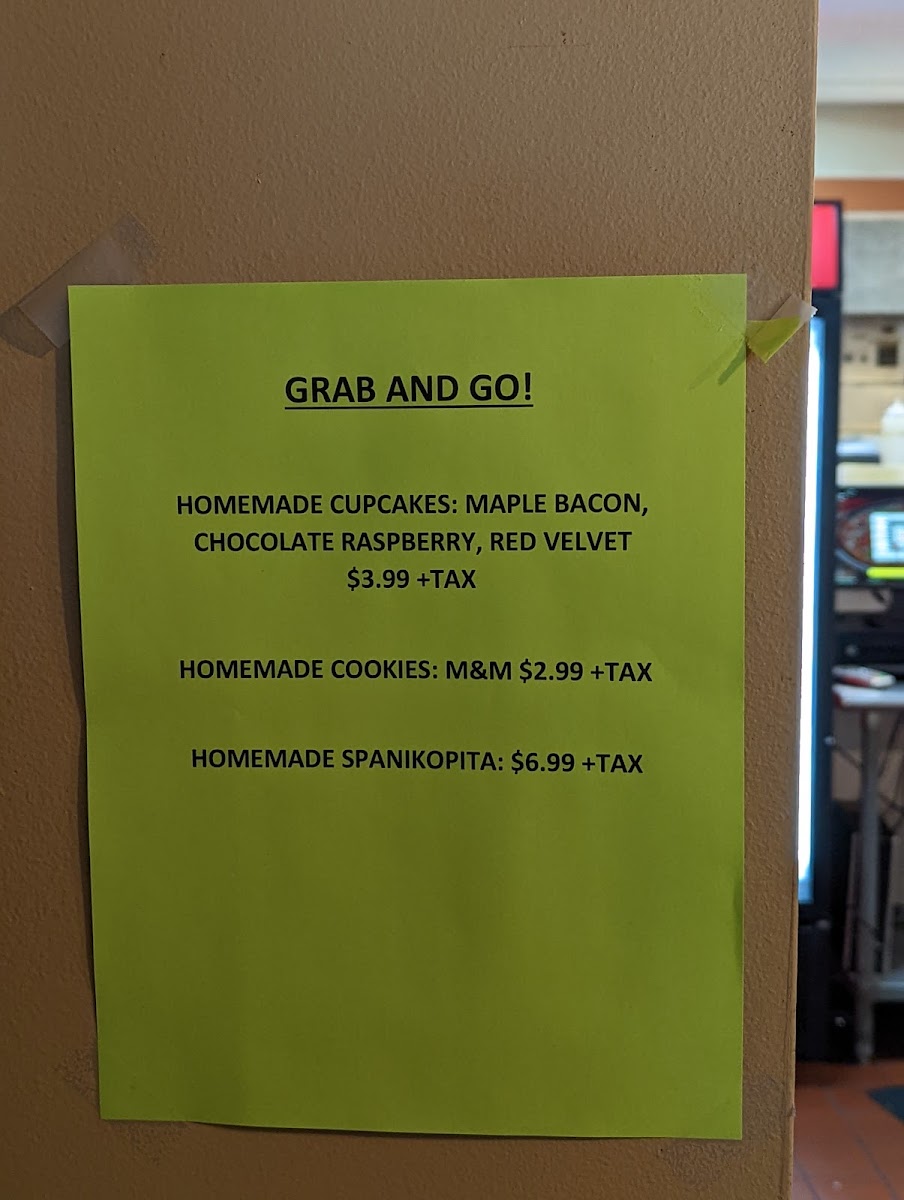 GRAB AND GO!
HOMEMADE CUPCAKES: MAPLE BACON,
CHOCOLATE RASPBERRY, RED VELVET
$3.99 +TAX
HOMEMADE COOKIES: M&M $2.99 +TAX
HOMEMADE SPANIKOPITA: $6.99 +TAX